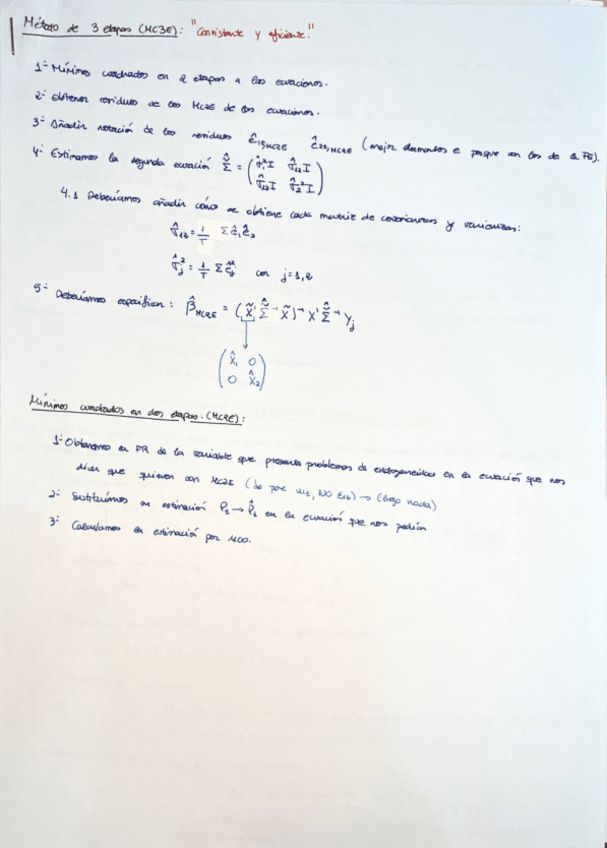 Método de 3 etapas (MC3E): "Consistente y eficiente."
1º Mínimos cuadrados en 2 etapas a las ecuaciones.
2º Obtener residuos de los MC2E de las ecuaciones.
3º Añadir notación de los residuos ê MC2E ê MC2E (mejor llamarlos e porque son los de la FE).
4º Estimamos la segunda ecuación Σ̂ = ( σ̂₁²I σ̂₁₂I
σ̂₁₂I σ̂₂²I )
4.1 Deberíamos añadir cómo se obtiene cada matriz de covarianzas y varianzas:
σ̂₁₂ = 1/T Σ ê₁ ê₂
σ̂ⱼ² = 1/T Σ êⱼ² con j=1,2
5º Deberíamos especificar: β̂ = (X̃' Σ̂⁻¹ X̃)⁻¹ X' Σ̂⁻¹ yⱼ
( X̂₁ 0
0 X̂₂ )
Mínimos cuadrados en dos etapas (MC2E):
1º Obtenemos la FR de la variable que presenta problemas de endogeneidad en la ecuación que nos
dicen que quieren con MC2E (Se pone u, NO ε) → (luego nada)
2º Sustituimos su estimación Pₜ → P̂ₜ en la ecuación que nos pedían
3º Calculamos la estimación por MCO.